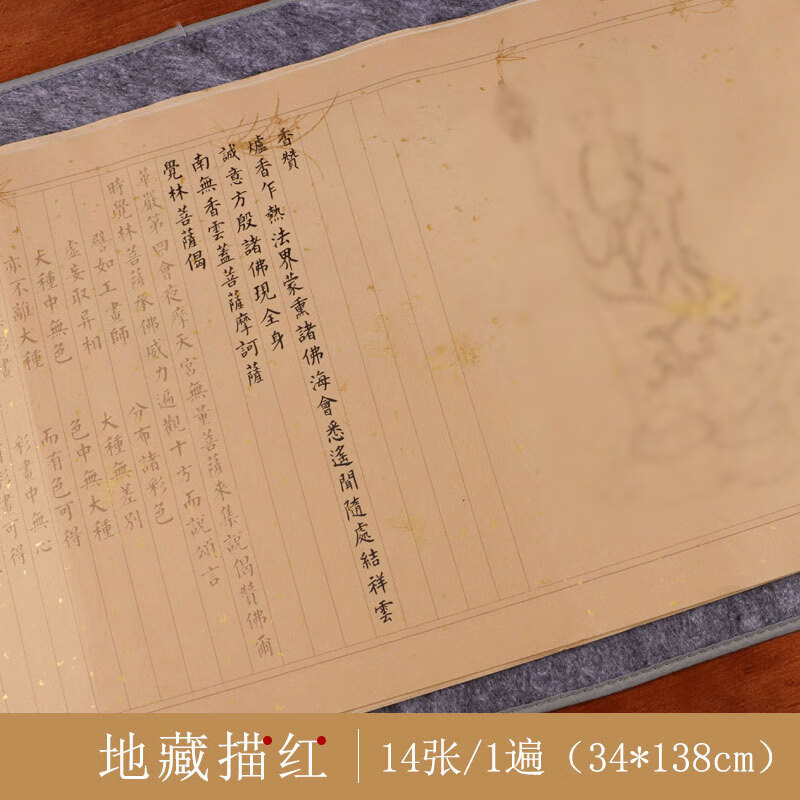 香贊
爐香乍熱法界蒙熏諸佛海會悉遙聞隨處結祥雲
誠意方殷諸佛現全身
南無香雲蓋菩薩摩訶薩
覺林菩薩偈
華嚴第四會夜摩天宮無量菩薩來集說偈贊佛爾
時覺林菩薩承佛威力遍觀十方而說頌言
譬如工畫師 分布諸彩色
虛妄取异相 大種無差別
大種中無色 色中無大種
亦不離大種 而有色可得
彩畫中無心
彩畫可得
地藏描红
14张/1遍（34*138cm）